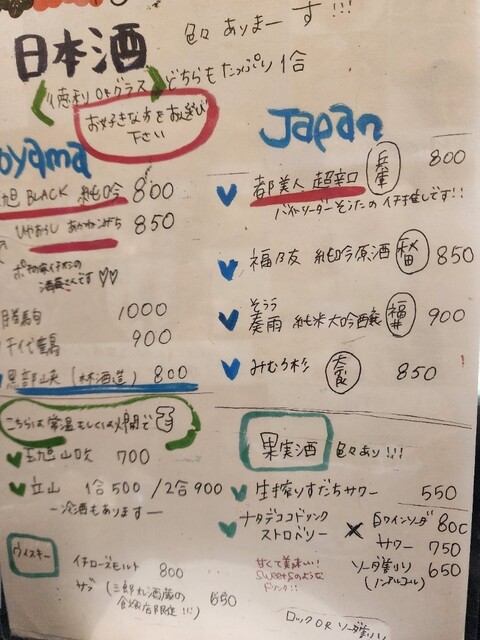 日本酒
色々ありまーす!!!
徳利ORグラス どちらもたっぷり1合
お好きな方をお選び
下さい
oyama
旭 BLACK 純吟 800
850
満寿さんです♡♡
1000
千代鶴 900
黒部峡 (林酒造) 800
こちらは常温もしくは燗で
玉旭 山吹 700
立山 1合500 / 2合900
ー冷酒もありますー
ウイスキー
イチローズモルト 800
(三郎丸蒸留の
飲食店限定!!!) 650
Japan
都美人 超辛口 兵庫 800
バイトリーダーそうたのイチ推しです!!
福乃友 純吟原酒 秋田 850
そうう
奏雨 純米大吟醸 福井 900
みむろ杉 奈良 850
果実酒 色々あり!!!
生搾りすだちサワー 550
ナタデココドリンク
ストロベリー
× 白ワインソーダ 800
サワー 750
ソーダ割り 650
(ノンアルコール)
甘くて美味い!
Sweetsのような
ドリンク!!
ロック OR ソーダ割り